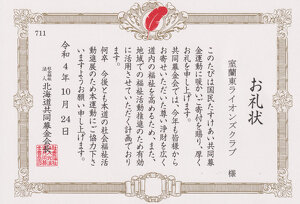 711
お礼状
室蘭東ライオンズクラブ 様
このたびは国民たすけあい共同募
金運動に暖かいご寄付を賜り、厚く
お礼を申し上げます。
共同募金会では、今年も皆様から
お寄せいただいた尊い浄財を広く
道内の福祉を高めるため、また、
地域での福祉活動推進のため有効
に活用させていただく計画であり
ます。
何卒 今後とも本道の社会福祉活
動進展のため本運動にご協力下さ
いますようお願いいたします。
令和4年10月24日
社会福祉法人 北海道共同募金会